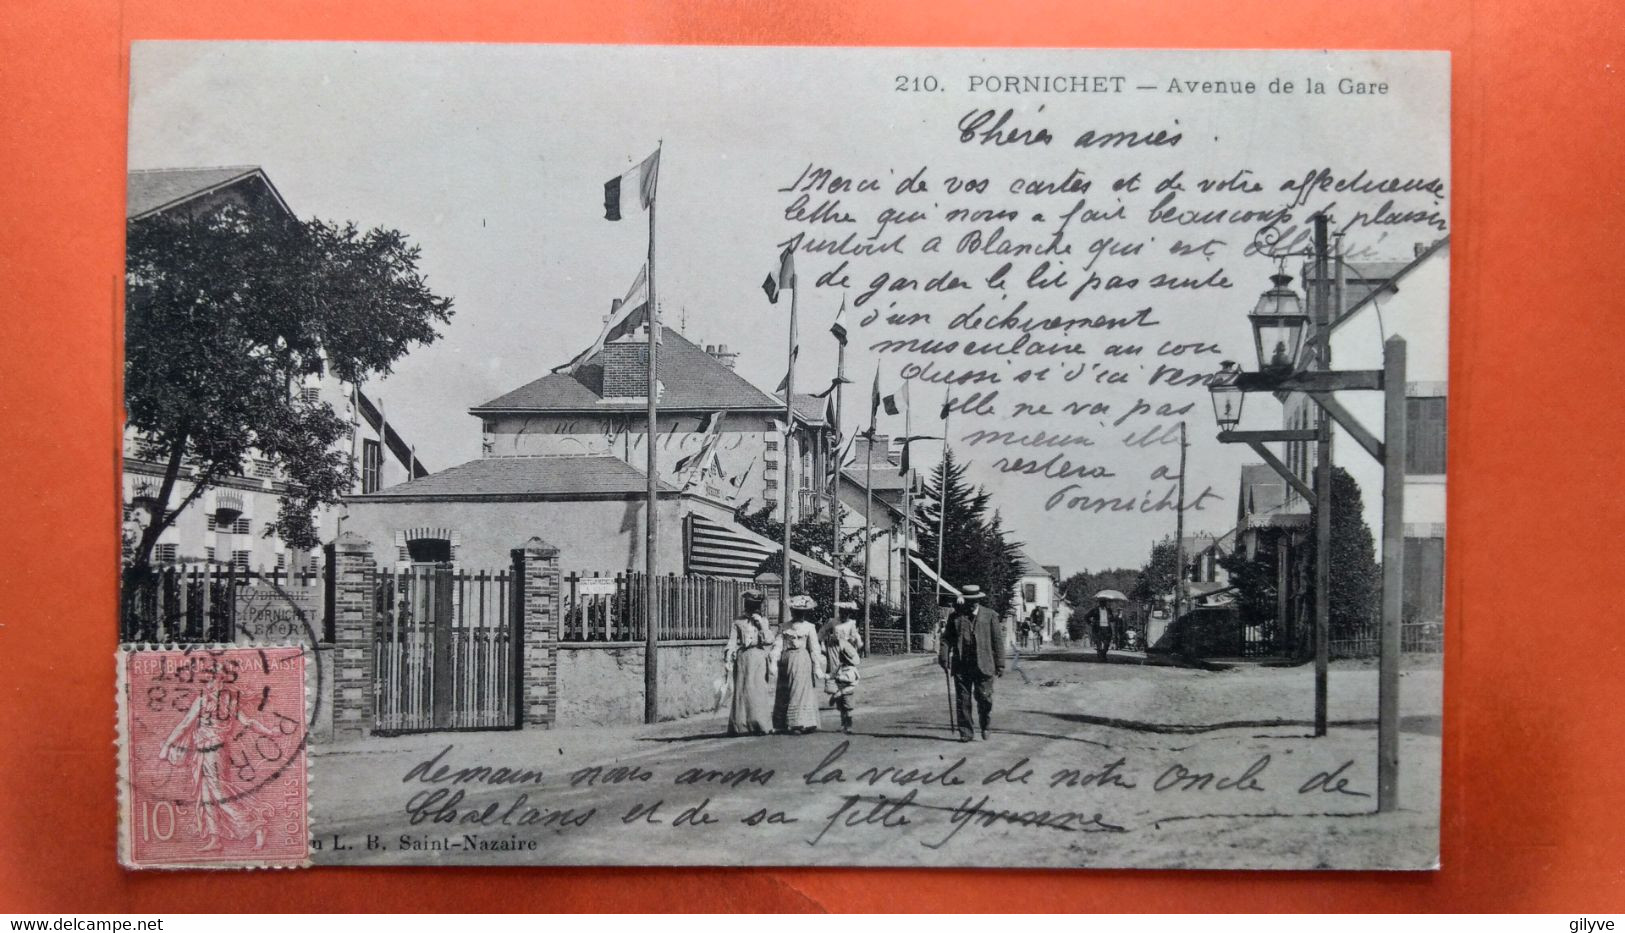 210. PORNICHET — Avenue de la Gare
Chéres amies.
Merci de vos cartes et de votre affectueuse
lettre qui nous a fait beaucoup de plaisir
surtout a Blanche qui est obligée
de garder le lit par suite
d'un déchirement
musculaire au cou
Aussi si d'ici Vend
elle ne va pas
mieux elle
restera a
Pornichet
demain nous avons la visite de notre Oncle de
Challans et de sa fille Yvonne
PORNICHET
LEFORT
REPUBLIQUE FRANÇAISE
10c POSTES
PORNIC
SEPT
n L. B. Saint-Nazaire
gilyve